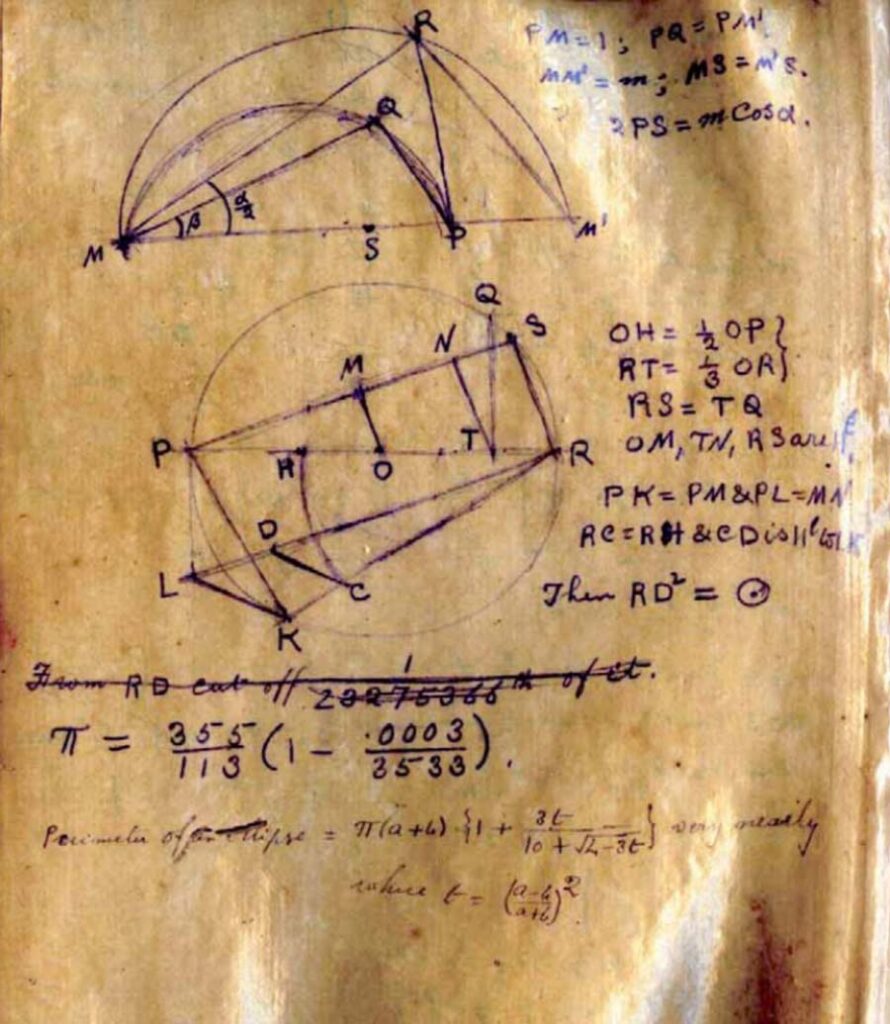 R
PM = 1 ; PQ = PM'.
MM' = m ; MS = M'S.
2PS = m Cos α.
Q
β α/2
M S P M'
Q
S
N
M
P H O T R
D
L C
K
OH = 1/2 OP}
RT = 1/3 OR}
RS = TQ
OM, TN, RS are ||
PK = PM & PL = MN
RC = RH & CD is ||l
Then RD² = ⊙
From RD cut off 1/23275366 th of it.
π = 355/113 (1 − .0003/3533).
Perimeter of an ellipse = π(a+b) {1 + 3t/(10 + √4−3t)} very nearly
where t = (a−b/a+b)²